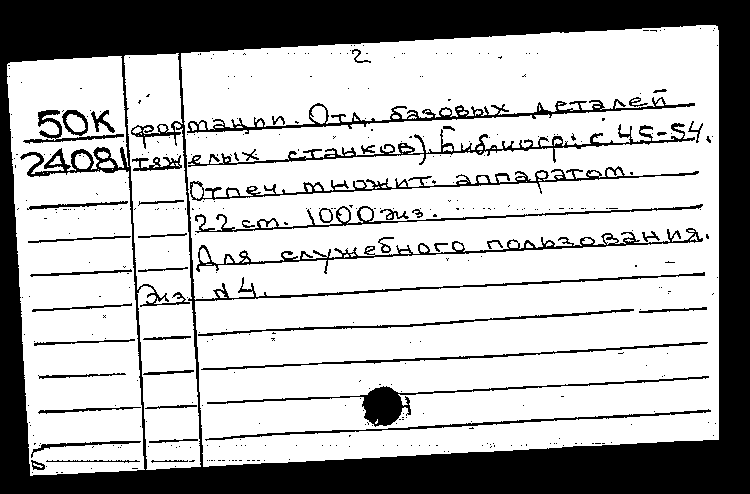 2
50К формации. Отд. базовых деталей
24081 тяжелых станков). Библиогр.: с. 45-54.
Отпеч. множит. аппаратом.
22 см. 1000 экз.
Для служебного пользования.
Экз. N 4.